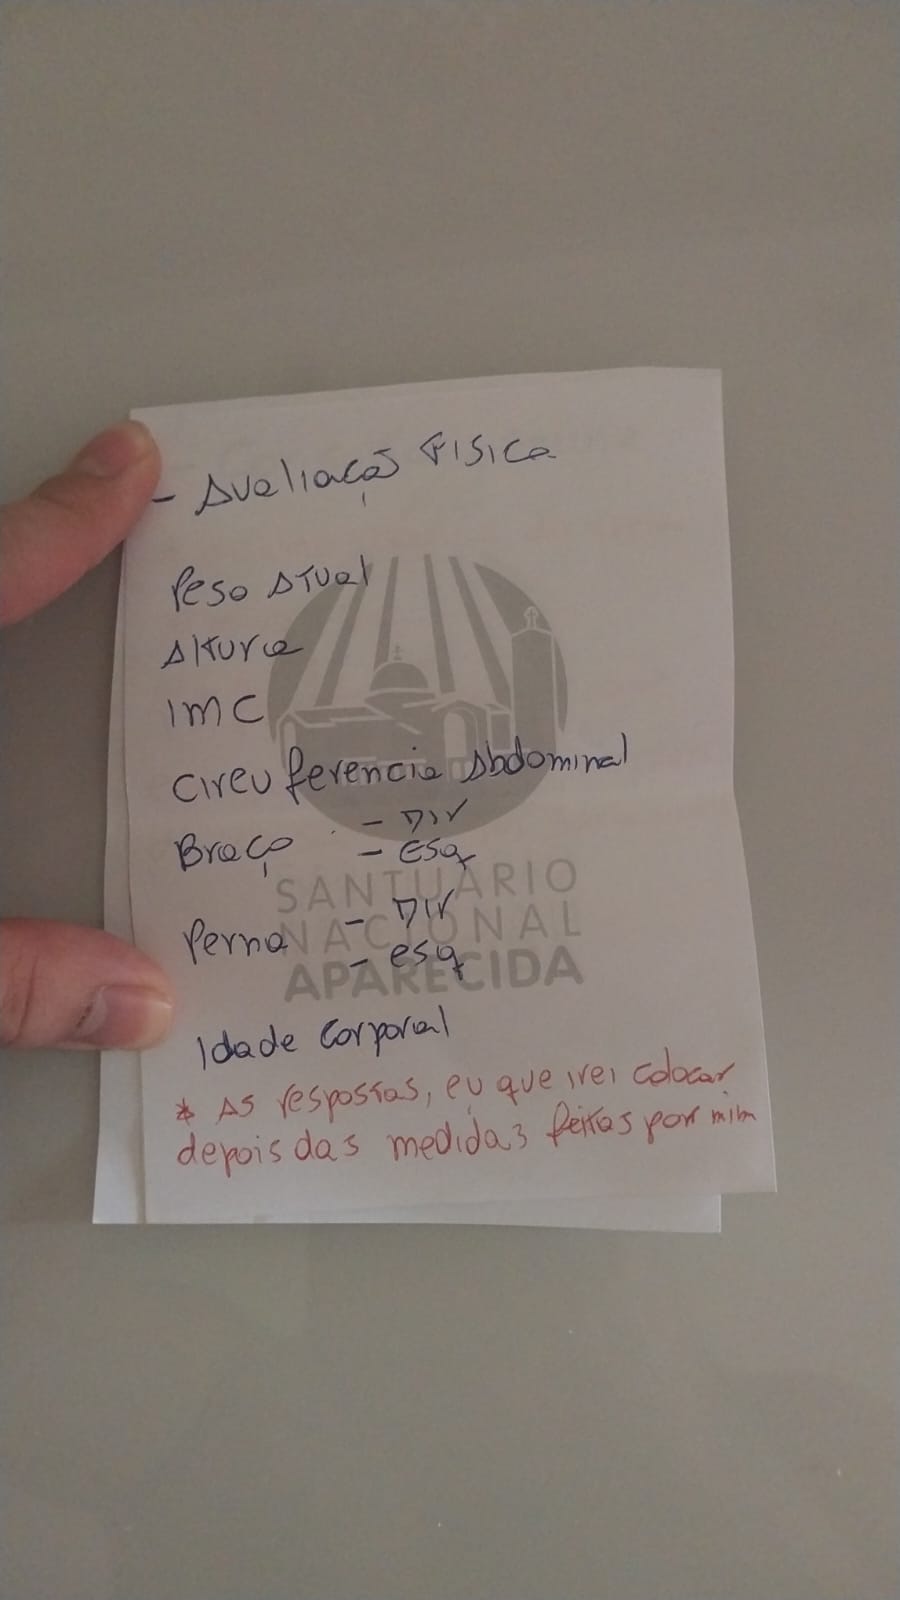 - Avaliação Fisica
Peso Atual
Altura
IMC
Circuferencia Abdominal
Braço - Dir
- Esq
Perna - Dir
- esq
Idade Corporal
* As respostas, eu que irei colocar
depois das medidas feitas por mim
SANTUÁRIO
NACIONAL
APARECIDA